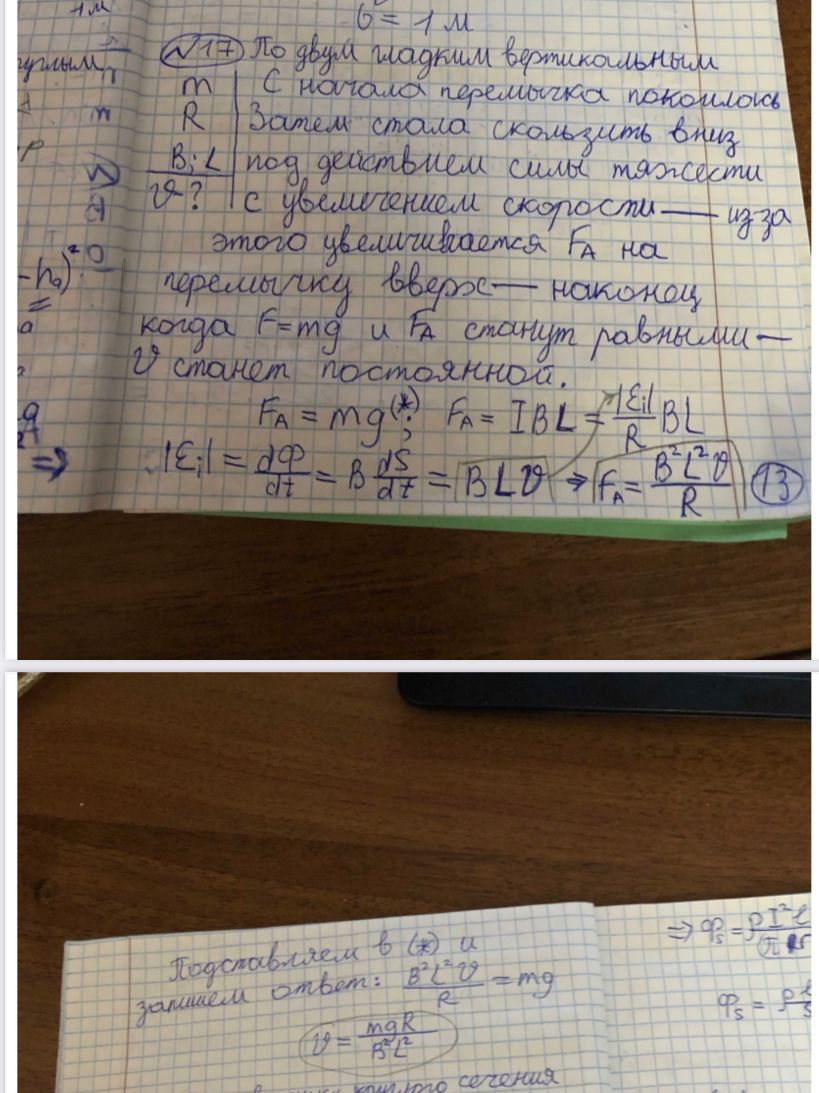 1м
б = 1 м
№17) По двум гладким вертикальным
m | С начала перемычка покоилась
R | Затем стала скользить вниз
B; L | под действием силы тяжести
υ-? | с увеличением скорости — из-за
этого увеличивается F_A на
перемычку вверх — наконец
когда F=mg и F_A станут равными —
υ станет постоянной.
F_A = mg (*); F_A = IBL = |ε_i|/R BL
|ε_i| = dΦ/dt = B dS/dt = BLυ ⇒ F_A = B²L²υ/R (13)
Подставляем в (*) и
запишем ответ: B²L²υ/R = mg
υ = mgR/B²L²
круглого сечения